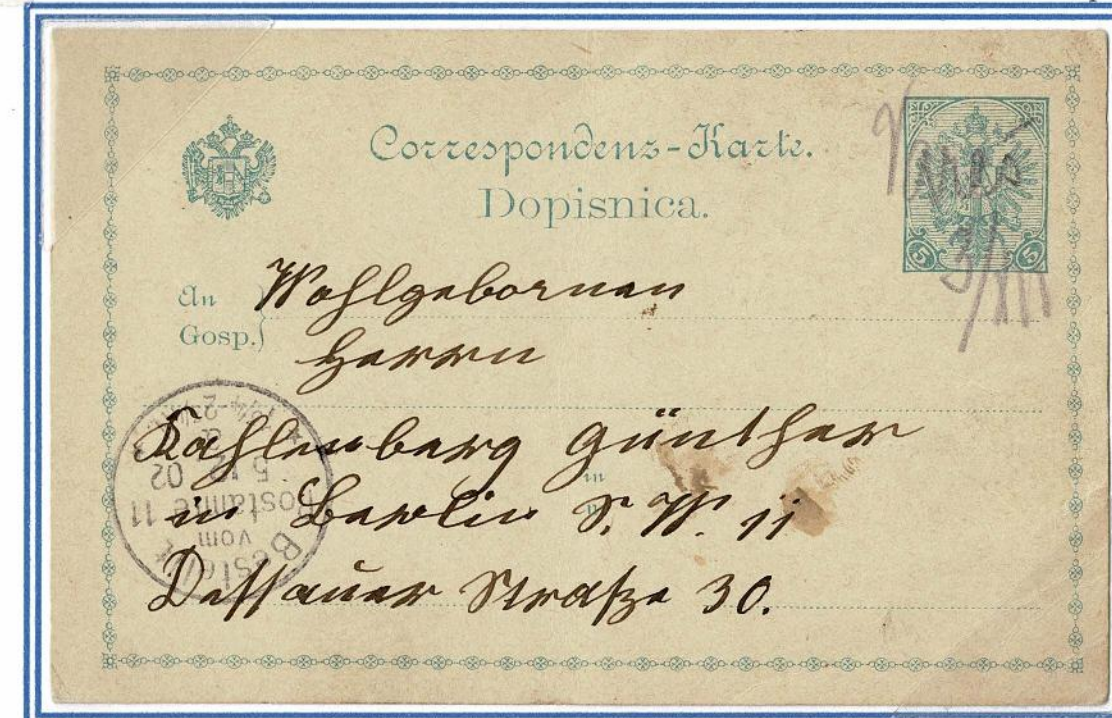 Correspondenz-Karte.
Dopisnica.
5 5
3/XII
An
Gosp.
Wohlgebornen
Herrn
Kahlenberg Günther
in
in Berlin S. W. 11
Dessauer Straße 30.
Bestellt
vom
Postamte 11
5.12.02